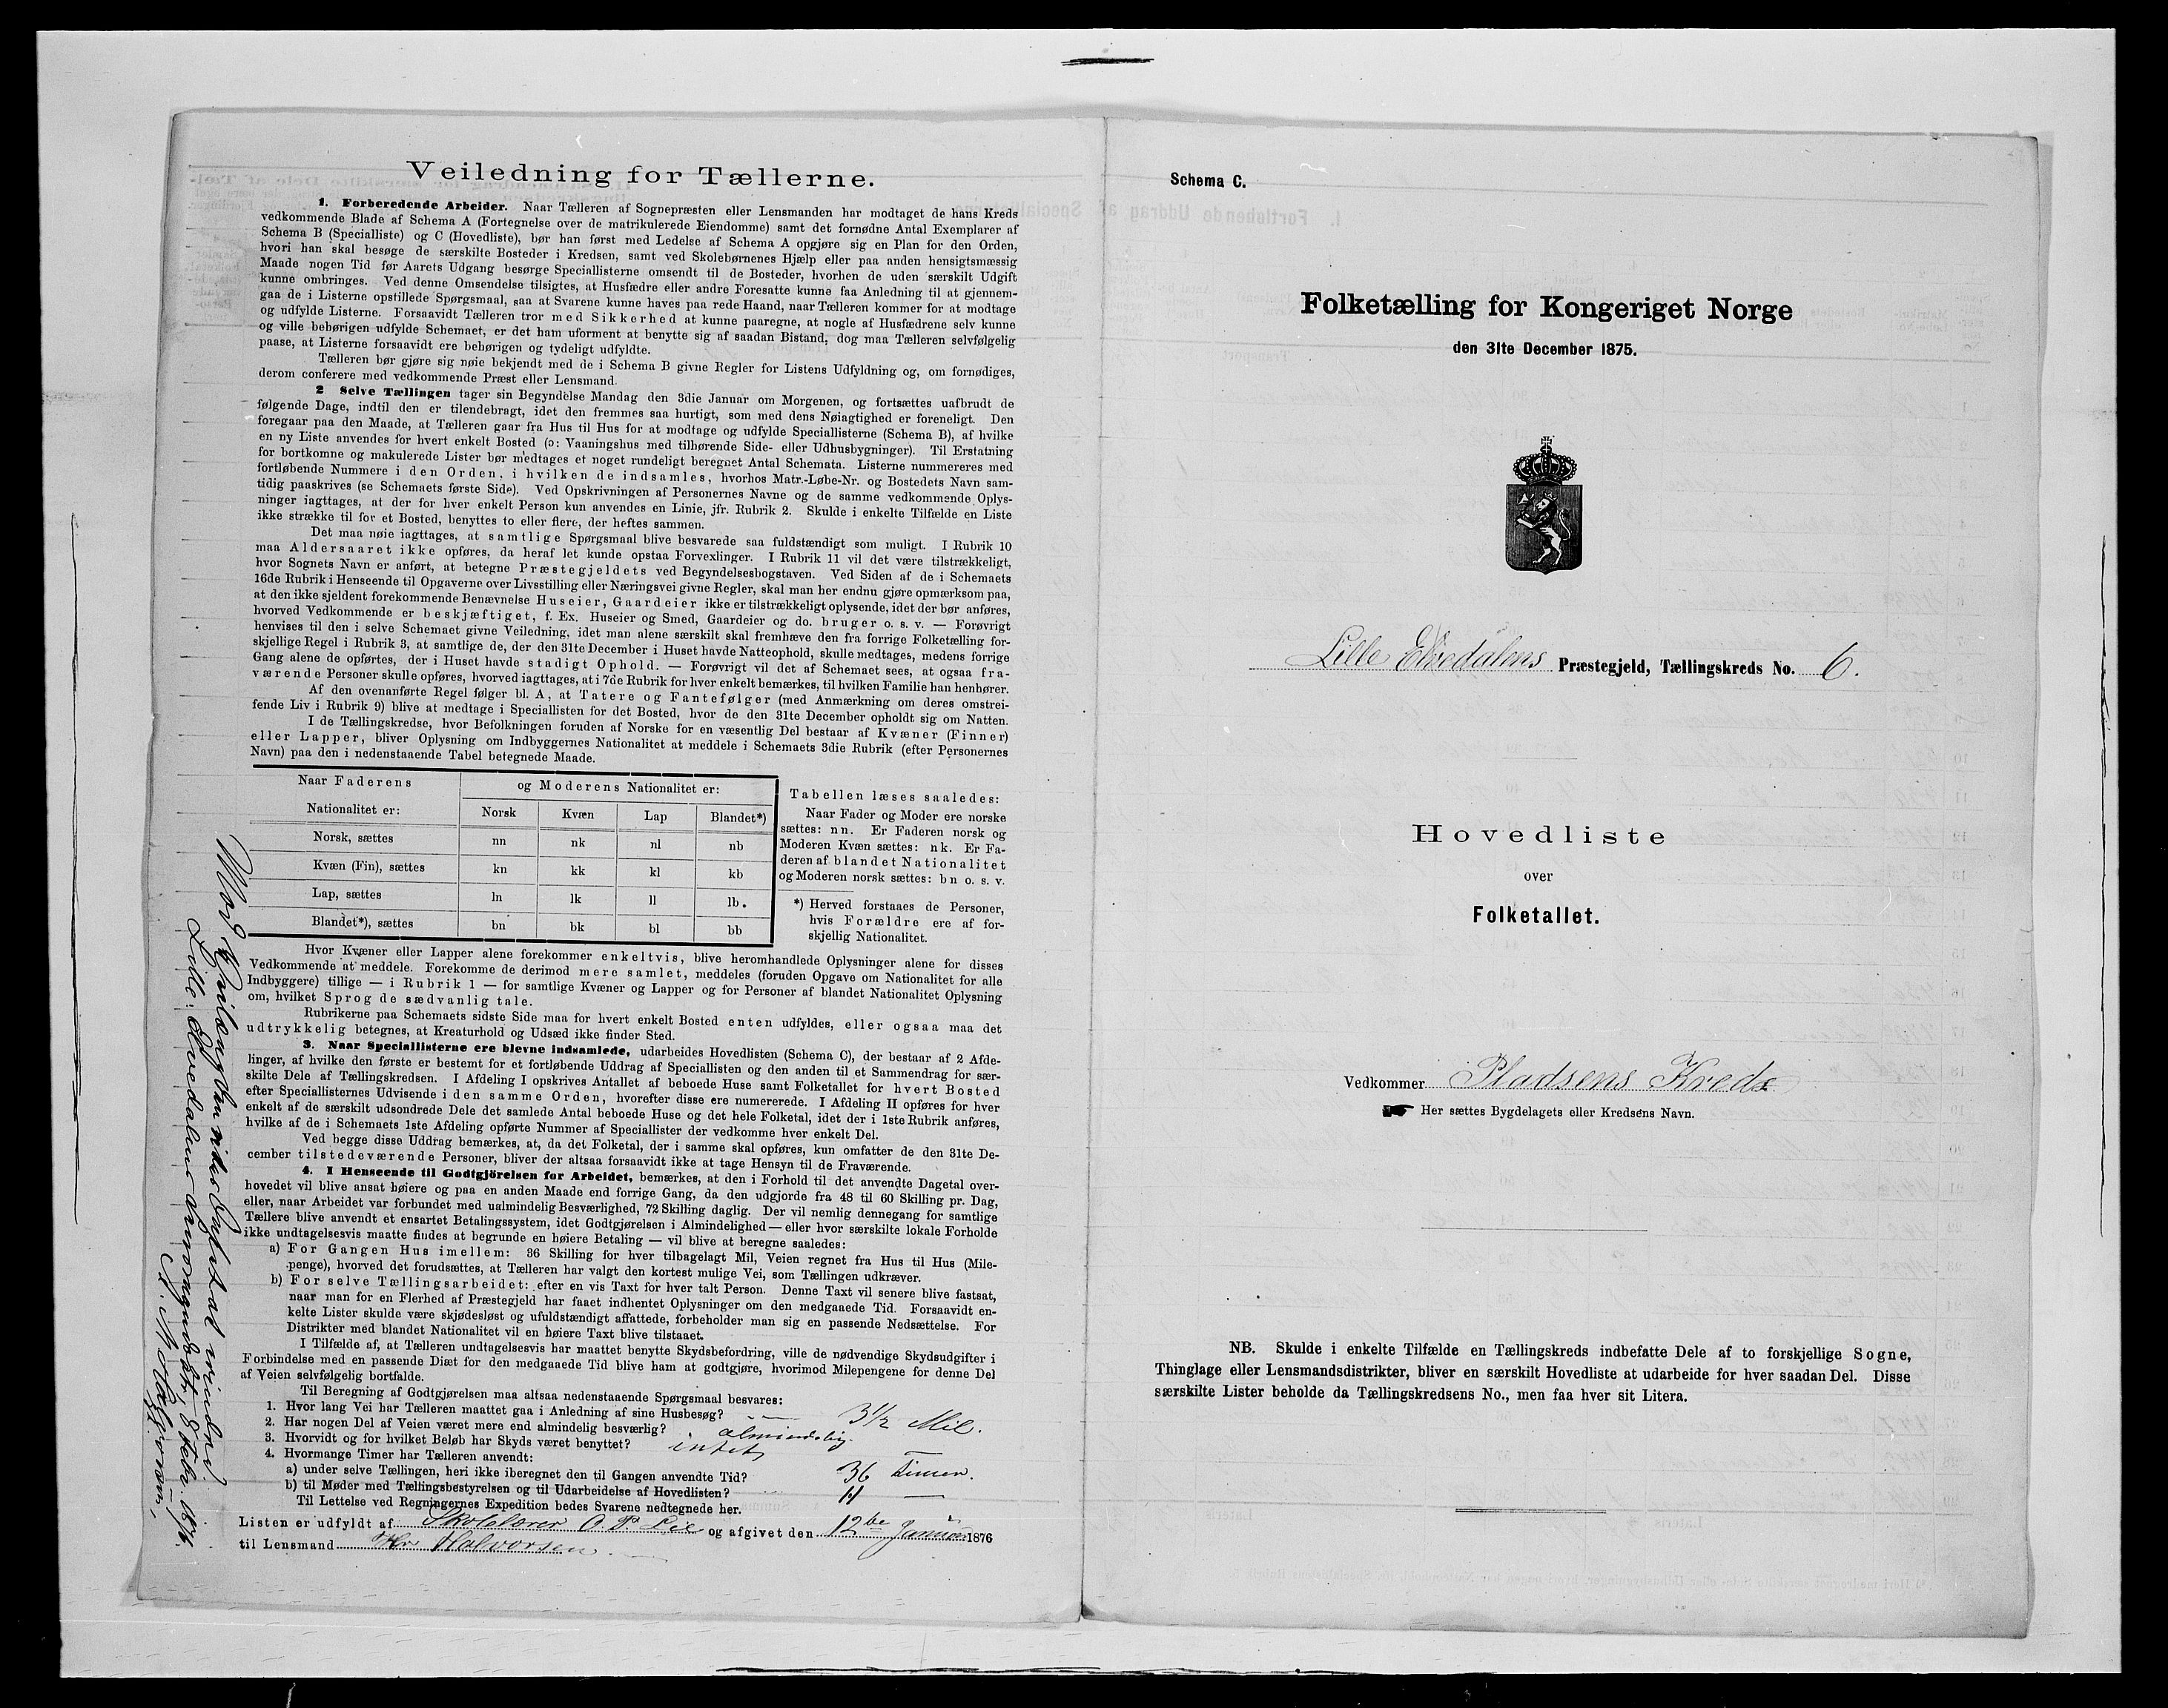 Veiledning for Tællerne.
1. Forberedende Arbeider. Naar Tælleren af Sognepræsten eller Lensmanden har modtaget de hans Kreds
vedkommende Blade af Schema A (Fortegnelse over de matrikulerede Eiendomme) samt det fornødne Antal Exemplarer af
Schema B (Specialliste) og C (Hovedliste), bør han først med Ledelse af Schema A opgjøre sig en Plan for den Orden,
hvori han skal besøge de særskilte Bosteder i Kredsen, samt ved Skolebørnenes Hjælp eller paa anden hensigtsmæssig
Maade nogen Tid før Aarets Udgang besørge Speciallisterne omsendt til de Bosteder, hvorhen de uden særskilt Udgift
kunne ombringes. Ved denne Omsendelse tilsigtes, at Husfædre eller andre Foresatte kunne faa Anledning til at gjennem-
gaa de i Listerne opstillede Spørgsmaal, saa at Svarene kunne haves paa rede Haand, naar Tælleren kommer for at modtage
og udfylde Listerne. Forsaavidt Tælleren tror med Sikkerhed at kunne paaregne, at nogle af Husfædrene selv kunne
og ville behørigen udfylde Schemaet, er det ham uforment at benytte sig af saadan Bistand, dog maa Tælleren selvfølgelig
paase, at Listerne forsaavidt ere behørigen og tydeligt udfyldte.
Tælleren bør gjøre sig nøie bekjendt med de i Schema B givne Regler for Listens Udfyldning og, om fornødiges,
derom conferere med vedkommende Præst eller Lensmand.
2 Selve Tællingen tager sin Begyndelse Mandag den 3die Januar om Morgenen, og fortsættes uafbrudt de
følgende Dage, indtil den er tilendebragt, idet den fremmes saa hurtigt, som med dens Nøiagtighed er foreneligt. Den
foregaar paa den Maade, at Tælleren gaar fra Hus til Hus for at modtage og udfylde Speciallisterne (Schema B), af hvilke
en ny Liste anvendes for hvert enkelt Bosted (ɔ: Vaaningshus med tilhørende Side- eller Udhusbygninger). Til Erstatning
for bortkomne og makulerede Lister bør medtages et noget rundeligt beregnet Antal Schemata. Listerne nummereres med
fortløbende Nummere i den Orden, i hvilken de indsamles, hvorhos Matr.-Løbe-Nr. og Bostedets Navn sam-
tidig paaskrives (se Schemaets første Side). Ved Opskrivningen af Personernes Navne og de samme vedkommende Oplys-
ninger iagttages, at der for hver enkelt Person kun anvendes en Linie, jfr. Rubrik 2. Skulde i enkelte Tilfælde en Liste
ikke strække til for et Bosted, benyttes to eller flere, der heftes sammen.
Det maa nøie iagttages, at samtlige Spørgsmaal blive besvarede saa fuldstændigt som muligt. I Rubrik 10
maa Aldersaaret ikke opføres, da heraf let kunde opstaa Forvexlinger. I Rubrik 11 vil det være tilstrækkeligt,
hvor Sognets Navn er anført, at betegne Præstegjeldets ved Begyndelsesbogstaven. Ved Siden af de i Schemaets
16de Rubrik i Henseende til Opgaverne over Livsstilling eller Næringsvei givne Regler, skal man her endnu gjøre opmærksom paa,
at den ikke sjeldent forekommende Benævnelse Huseier, Gaardeier ikke er tilstrækkeligt oplysende, idet der bør anføres,
hvorved Vedkommende er beskjæftiget, f. Ex. Huseier og Smed, Gaardeier og do. bruger o. s. v. — Forøvrigt
henvises til den i selve Schemaet givne Veiledning, idet man alene særskilt skal fremhæve den fra forrige Folketælling for-
skjellige Regel i Rubrik 3, at samtlige de, der den 31te December i Huset havde Natteophold, skulle medtages, medens forrige
Gang alene de opførtes, der i Huset havde stadigt Ophold. — Forøvrigt vil det af Schemaet sees, at ogsaa fra-
værende Personer skulle opføres, hvorved iagttages, at i 7de Rubrik for hver enkelt bemærkes, til hvilken Familie han henhører.
Af den ovenanførte Regel følger bl. A, at Tatere og Fantefølger (med Anmærkning om deres omstrei-
fende Liv i Rubrik 9) blive at medtage i Speciallisten for det Bosted, hvor de den 31te December opholdt sig om Natten.
I de Tællingskredse, hvor Befolkningen foruden af Norske for en væsentlig Del bestaar af Kvæner (Finner)
eller Lapper, bliver Oplysning om Indbyggernes Nationalitet at meddele i Schemaets 3die Rubrik (efter Personernes
Navn) paa den i nedenstaaende Tabel betegnede Maade.
Naar Faderens og Moderens Nationalitet er:
Nationalitet er: Norsk Kvæn Lap Blandet*)
Norsk, sættes nn nk nl nb
Kvæn (Fin), sættes kn kk kl kb
Lap, sættes ln lk ll lb.
Blandet*), sættes bn bk bl bb
Tabellen læses saaledes:
Naar Fader og Moder ere norske
sættes: nn. Er Faderen norsk og
Moderen Kvæn sættes: nk. Er Fa-
deren af blandet Nationalitet
og Moderen norsk sættes: bn o. s. v.
*) Herved forstaaes de Personer,
hvis Forældre ere af for-
skjellig Nationalitet.
Hvor Kvæner eller Lapper alene forekommer enkeltvis, blive heromhandlede Oplysninger alene for disses
Vedkommende at meddele. Forekomme de derimod mere samlet, meddeles (foruden Opgave om Nationalitet for alle
Indbyggere) tillige — i Rubrik 1 — for samtlige Kvæner og Lapper og for Personer af blandet Nationalitet Oplysning
om, hvilket Sprog de sædvanlig tale.
Rubrikerne paa Schemaets sidste Side maa for hvert enkelt Bosted enten udfyldes, eller ogsaa maa det
udtrykkelig betegnes, at Kreaturhold og Udsæd ikke finder Sted.
3. Naar Speciallisterne ere blevne indsamlede, udarbeides Hovedlisten (Schema C), der bestaar af 2 Afde-
linger, af hvilke den første er bestemt for et fortløbende Uddrag af Speciallisten og den anden til et Sammendrag for sær-
skilte Dele af Tællingskredsen. I Afdeling I opskrives Antallet af beboede Huse samt Folketallet for hvert Bosted
efter Speciallisternes Udvisende i den samme Orden, hvorefter disse ere numererede. I Afdeling II opføres for hver
enkelt af de særskilt udsondrede Dele det samlede Antal beboede Huse og det hele Folketal, idet der i 1ste Rubrik anføres,
hvilke af de i Schemaets 1ste Afdeling opførte Nummer af Speciallister der vedkomme hver enkelt Del.
Ved begge disse Uddrag bemærkes, at, da det Folketal, der i samme skal opføres, kun omfatter de den 31te De-
cember tilstedeværende Personer, bliver der altsaa forsaavidt ikke at tage Hensyn til de Fraværende.
4. I Henseende til Godtgjörelsen for Arbeidet, bemærkes, at den i Forhold til det anvendte Dagetal over-
hovedet vil blive ansat høiere og paa en anden Maade end forrige Gang, da den udgjorde fra 48 til 60 Skilling pr. Dag,
eller, naar Arbeidet var forbundet med ualmindelig Besværlighed, 72 Skilling daglig. Der vil nemlig dennegang for samtlige
Tællere blive anvendt et ensartet Betalingssystem, idet Godtgjørelsen i Almindelighed — eller hvor særskilte lokale Forholde
ikke undtagelsesvis maatte findes at begrunde en høiere Betaling — vil blive at beregne saaledes:
a) For Gangen Hus imellem: 36 Skilling for hver tilbagelagt Mil, Veien regnet fra Hus til Hus (Mile-
penge), hvorved det forudsættes, at Tælleren har valgt den kortest mulige Vei, som Tællingen udkræver.
b) For selve Tællingsarbeidet: efter en vis Taxt for hver talt Person. Denne Taxt vil senere blive fastsat,
naar man for en Flerhed af Præstegjeld har faaet indhentet Oplysninger om den medgaaede Tid. Forsaavidt en-
kelte Lister skulde være skjødesløst og ufuldstændigt affattede, forbeholder man sig en passende Nedsættelse. For
Distrikter med blandet Nationalitet vil en høiere Taxt blive tilstaaet.
I Tilfælde af, at Tælleren undtagelsesvis har maattet benytte Skydsbefordring, ville de nødvendige Skydsudgifter i
Forbindelse med en passende Diæt for den medgaaede Tid blive ham at godtgjøre, hvorimod Milepengene for denne Del
af Veien selvfølgelig bortfalde.
Til Beregning af Godtgjørelsen maa altsaa nedenstaaende Spørgsmaal besvares:
1. Hvor lang Vei har Tælleren maattet gaa i Anledning af sine Husbesøg? 3 1/2 Mil.
2. Har nogen Del af Veien været mere end almindelig besværlig? almindelig.
3. Hvorvidt og for hvilket Beløb har Skyds været benyttet? intet
4. Hvormange Timer har Tælleren anvendt:
a) under selve Tællingen, heri ikke iberegnet den til Gangen anvendte Tid? 36 Timer.
b) til Møder med Tællingsbestyrelsen og til Udarbeidelse af Hovedlisten? —
Til Lettelse ved Regningernes Expedition bedes Svarene nedtegnede her.
Listen er udfyldt af Skolelærer O. P. Lie og afgivet den 12te Januar 1876
til Lensmand Hr Halvorsen.
Lille Elvedalens
Schema C.
Folketælling for Kongeriget Norge
den 31te December 1875.
Lille Elvedalens Præstegjeld, Tællingskreds No. 6.
Hovedliste
over
Folketallet.
Vedkommer Pladsens Kreds.
Her sættes Bygdelagets eller Kredsens Navn.
NB. Skulde i enkelte Tilfælde en Tællingskreds indbefatte Dele af to forskjellige Sogne,
Thinglage eller Lensmandsdistrikter, bliver en særskilt Hovedliste at udarbeide for hver saadan Del. Disse
særskilte Lister beholde da Tællingskredsens No., men faa hver sit Litera.